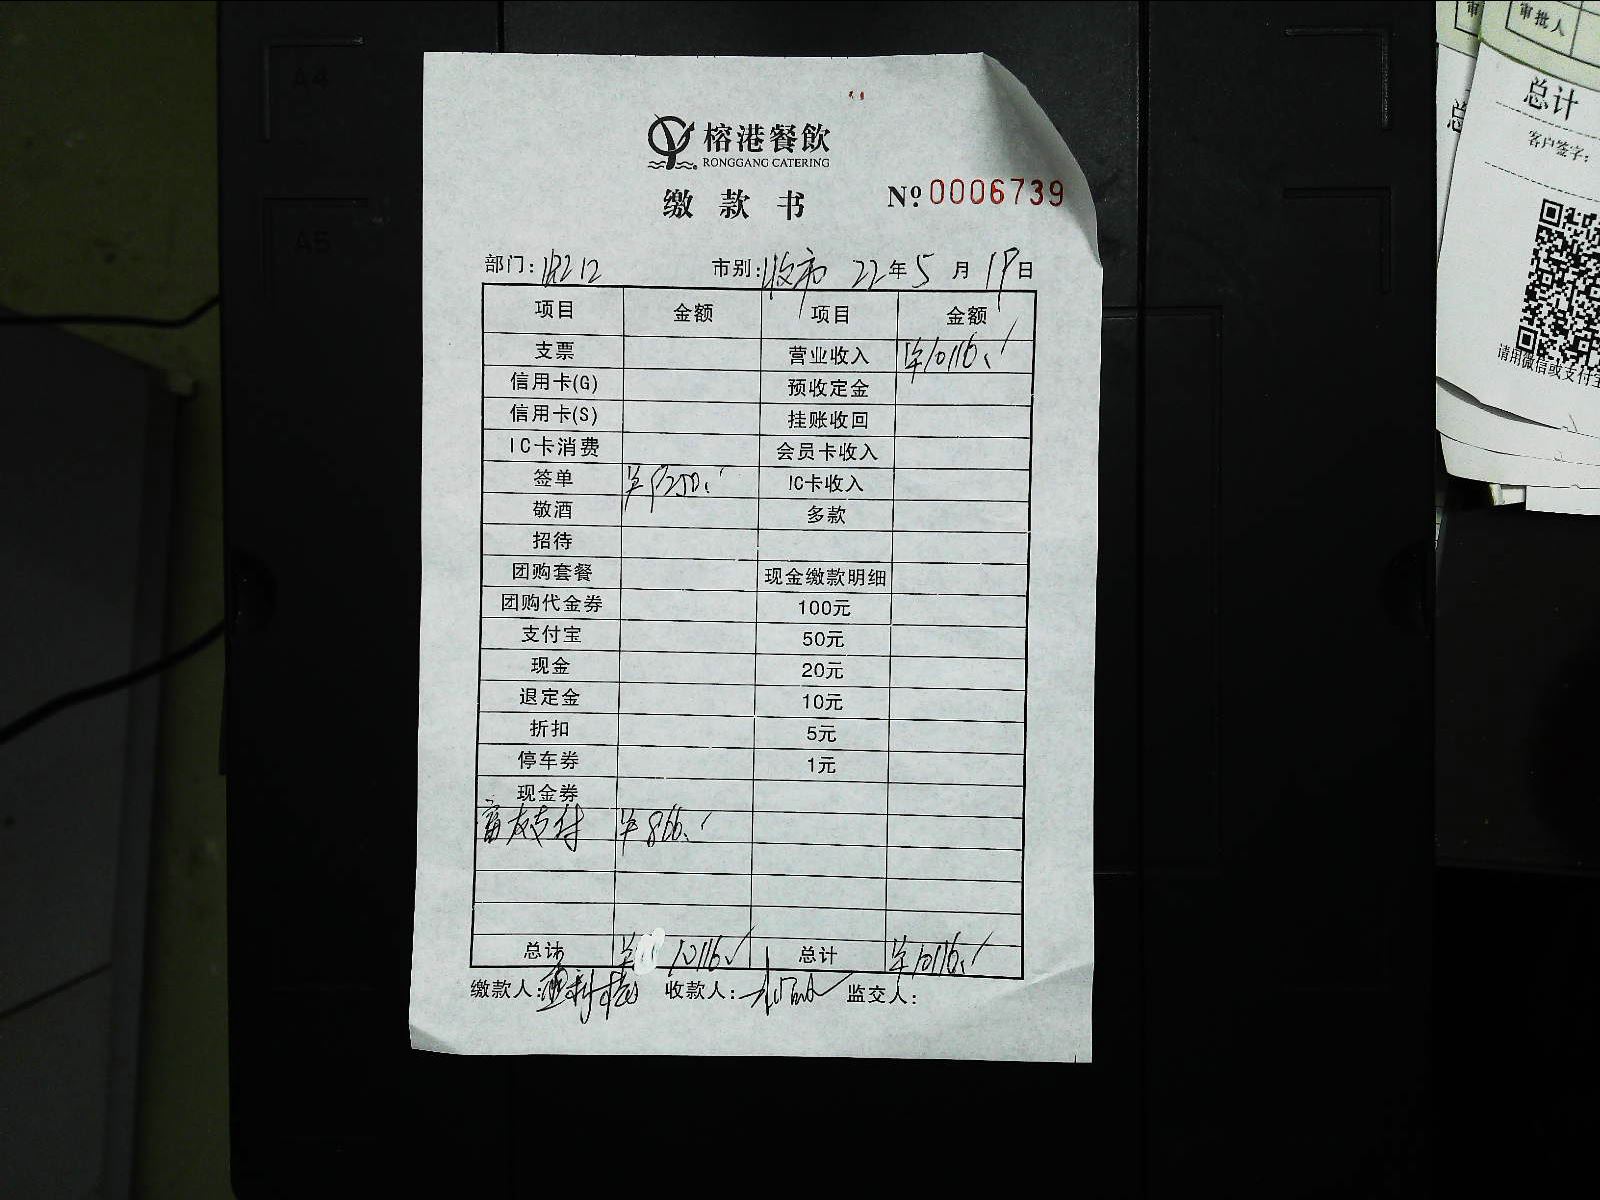 榕港餐飲
RONGGANG CATERING
缴款书 №0006739
部门: 市别:收市 22年5月19日
项目 金额 项目 金额
支票 营业收入 ¥10116.
信用卡(G) 预收定金
信用卡(S) 挂账收回
IC卡消费 会员卡收入
签单 ¥9250. IC卡收入
敬酒 多款
招待
团购套餐 现金缴款明细
团购代金券 100元
支付宝 50元
现金 20元
退定金 10元
折扣 5元
停车券 1元
现金券
富友支付 ¥866.
总计 ¥10116. 总计 ¥10116.
缴款人: 收款人: 监交人:
审批人
总计
客户签字:
请用微信或支付宝
A4
A5